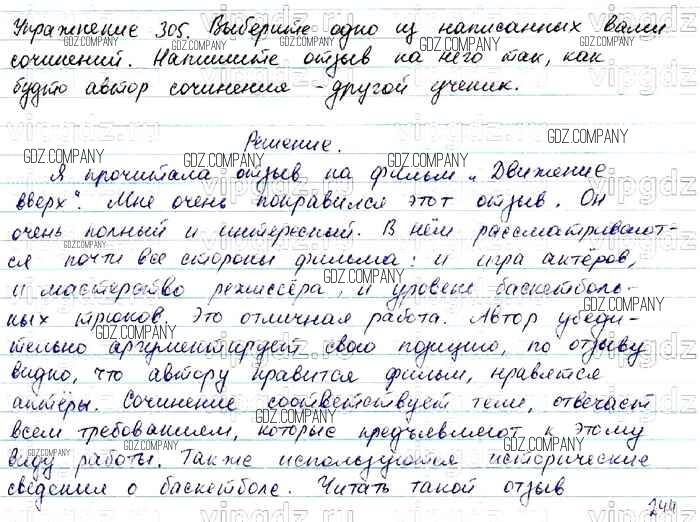 Упражнение 305. Выберите одно из написанных вами
сочинений. Напишите отзыв на него так, как
будто автор сочинения – другой ученик.
Решение.
Я прочитала отзыв на фильм „Движение
вверх". Мне очень понравился этот отзыв. Он
очень полный и интересный. В нём рассматривают-
ся почти все стороны фильма: и игра актёров,
и мастерство режиссёра, и уровень баскетболь-
ных трюков. Это отличная работа. Автор убеди-
тельно аргументирует свою позицию, по отзыву
видно, что автору нравится фильм, нравятся
актёры. Сочинение соответствует теме, отвечает
всем требованиям, которые предъявляют к этому
виду работы. Также используются исторические
сведения о баскетболе. Читать такой отзыв
244
GDZ.COMPANY
vipgdz.ru